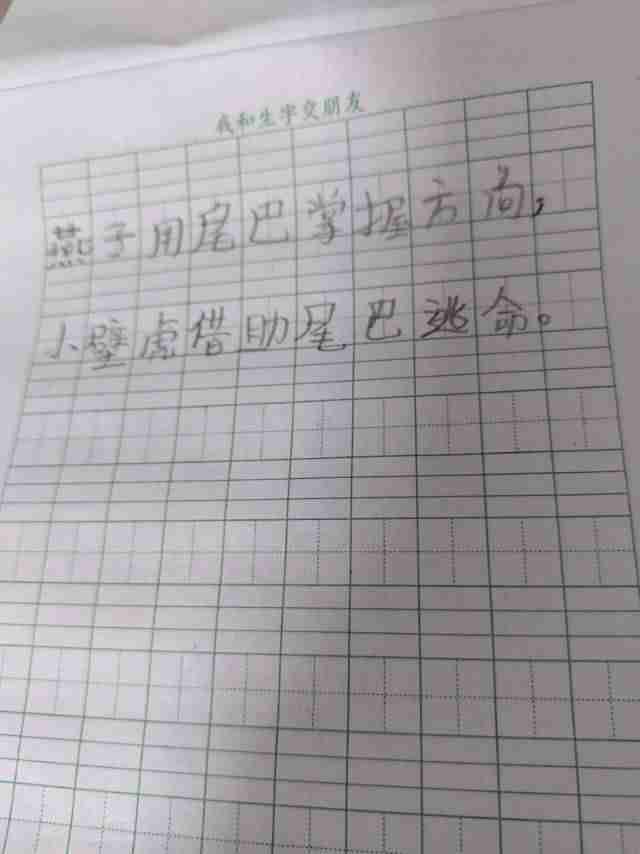 我和生字交朋友
燕子用尾巴掌握方向，
小壁虎借助尾巴逃命。